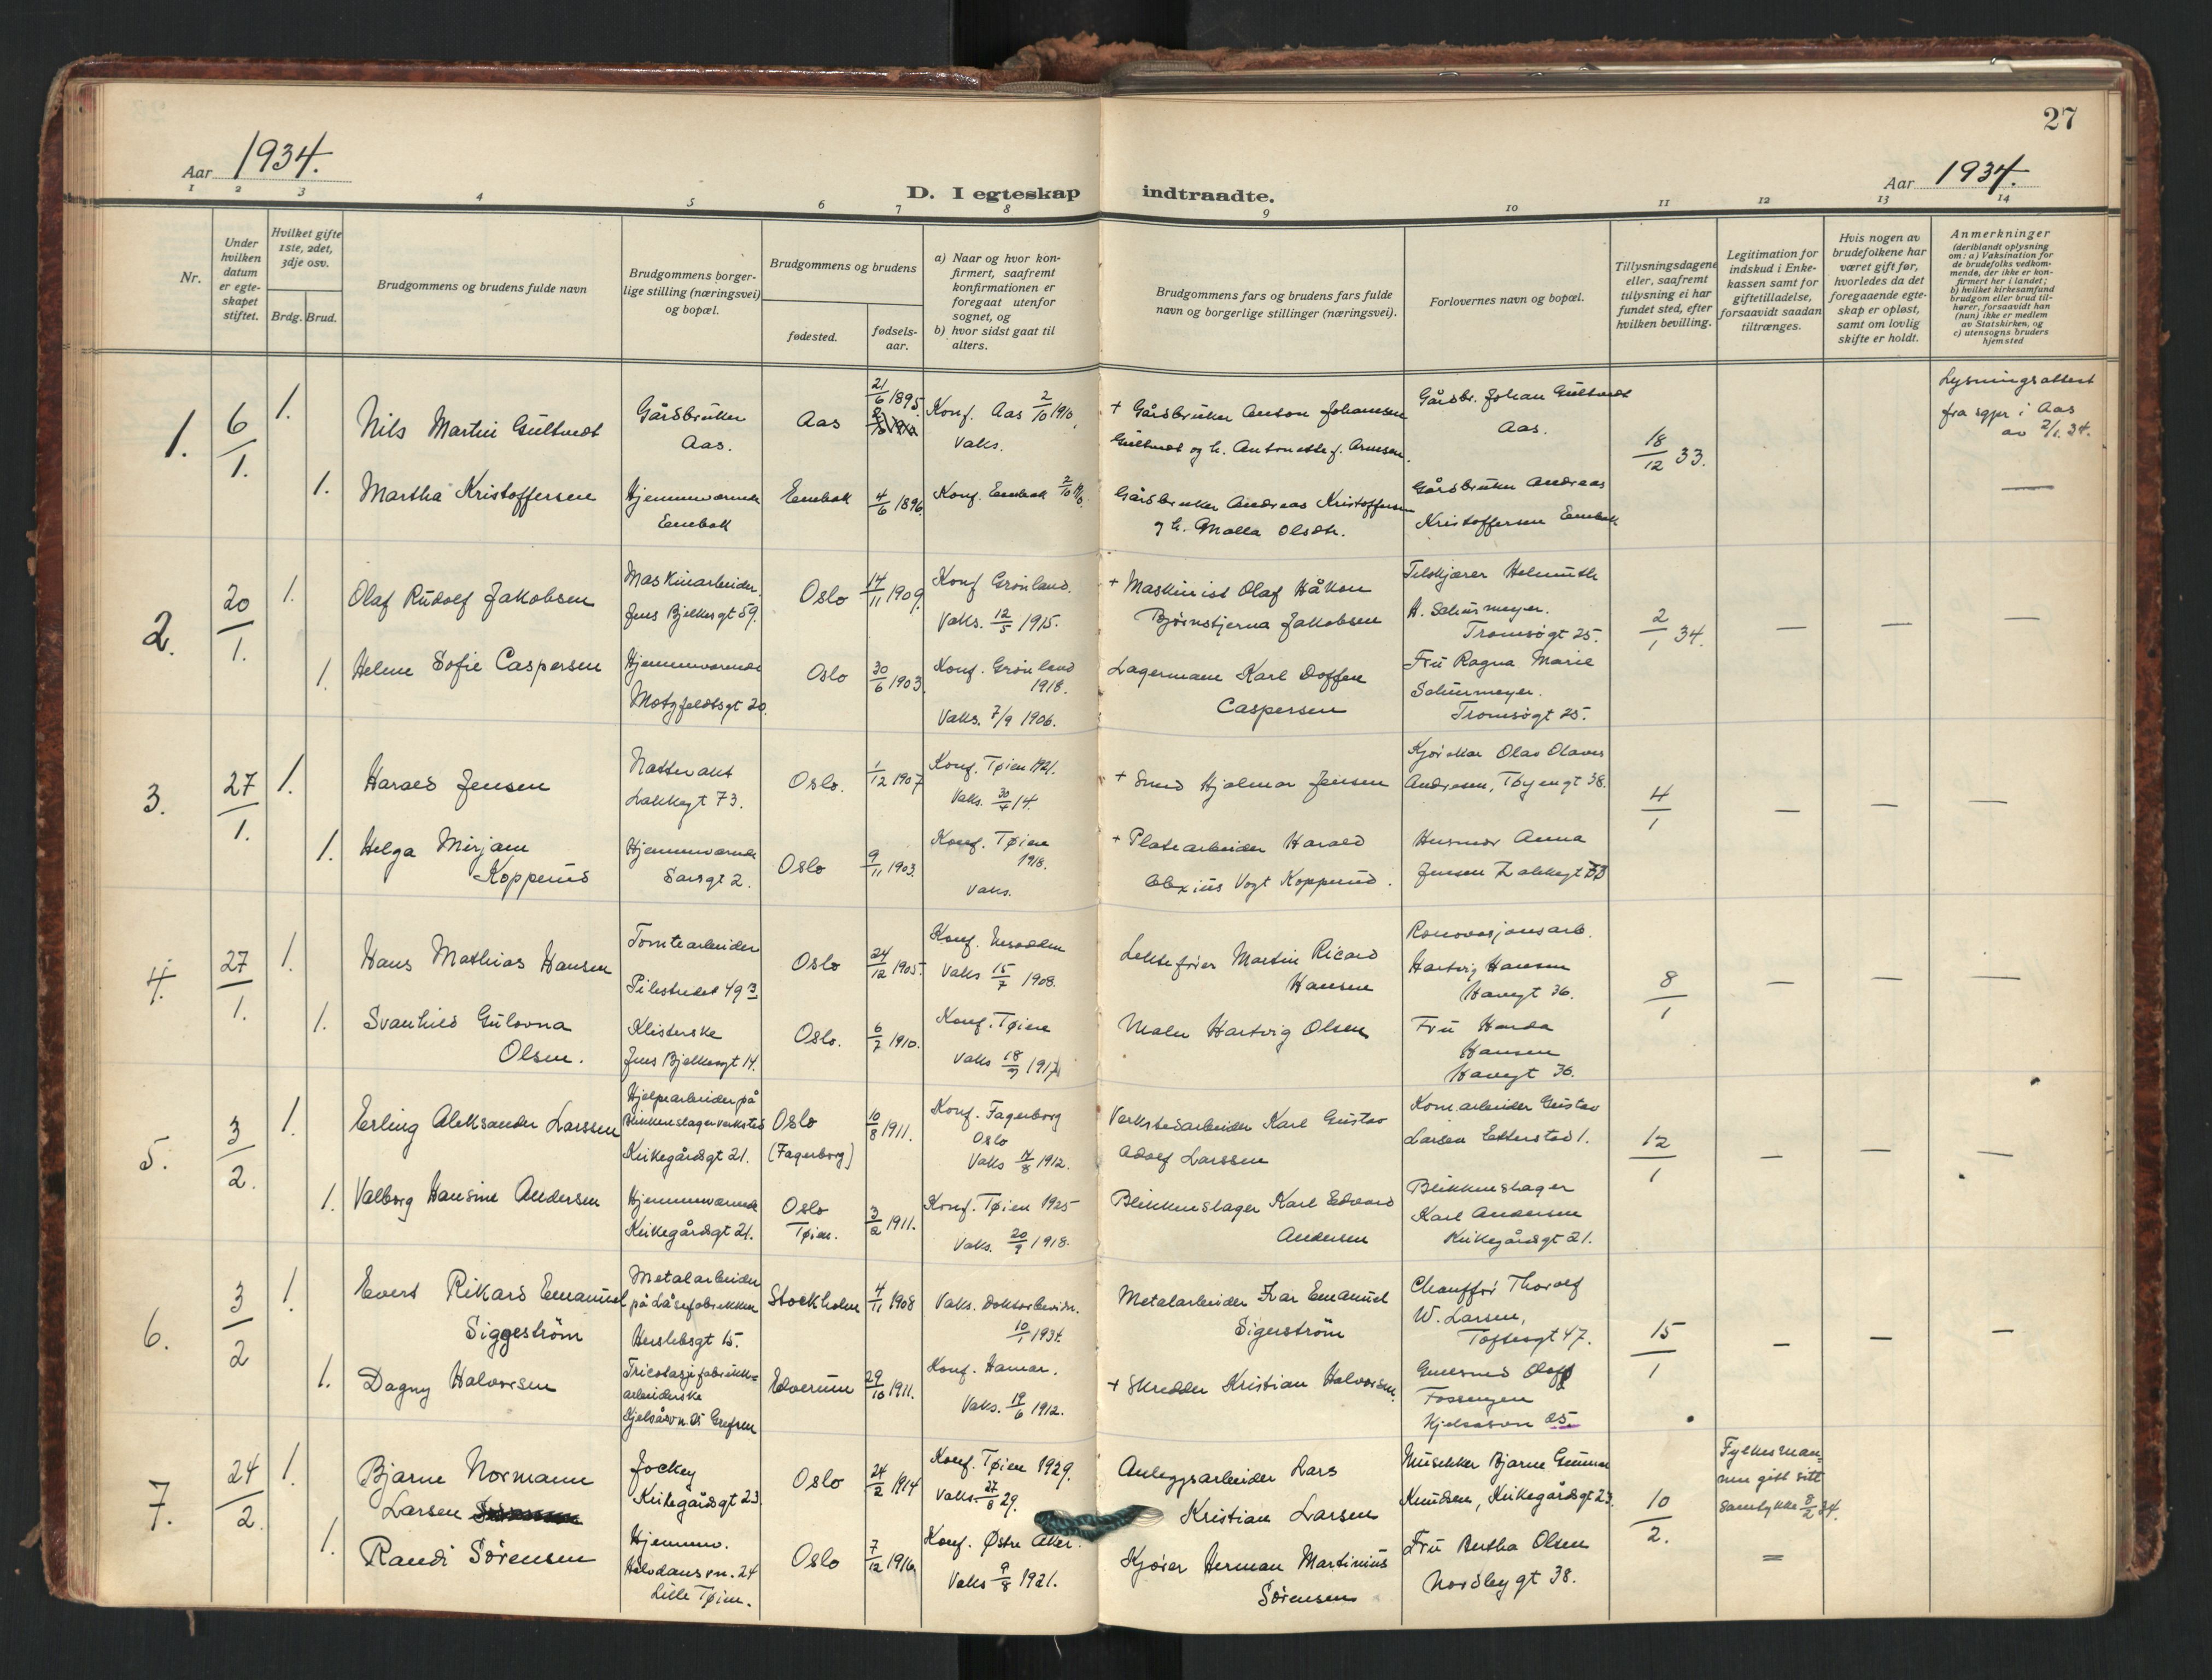 27
Aar 1934.
D. I egteskap indtraadte.
Aar 1934.
1 2 3 4 5 6 7 8 9 10 11 12 13 14
Nr.
Under hvilken datum er egteskapet stiftet.
Hvilket gifte 1ste, 2det, 3dje osv.
Brdg. Brud.
Brudgommens og brudens fulde navn
Brudgommens borgerlige stilling (næringsvei) og bopæl.
Brudgommens og brudens
fødested.
fødselsaar.
a) Naar og hvor konfirmert, saafremt konfirmationen er foregaat utenfor sognet, og
b) hvor sidst gaat til alters.
Brudgommens fars og brudens fars fulde navn og borgerlige stillinger (næringsvei).
Forlovernes navn og bopæl.
Tillysningsdagene eller, saafremt tillysning ei har fundet sted, efter hvilken bevilling.
Legitimation for indskud i Enkekassen samt for giftetilladelse, forsaavidt saadan tiltrænges.
Hvis nogen av brudefolkene har været gift før, hvorledes da det foregaaende egteskap er opløst, samt om lovlig skifte er holdt.
Anmerkninger
(deriblandt oplysning om: a) Vaksination for de brudefolks vedkommende, der ikke er konfirmert her i landet; b) hvilket kirkesamfund brudgom eller brud tilhører, forsaavidt han (hun) ikke er medlem av Statskirken, og c) utensogns bruders hjemsted
1. 6/1. 1. Nils Martin Gultvedt
Gårdbruker
Aas.
Aas
21/6 1895.
Konf. Aas 2/10 1910,
Vaks.
+ Gårdbruker Anton Johansen
Gultvedt og h. Antonette f. Arnesen.
Gårdbr. Johan Gultvedt
Aas.
18/12 33.
Lysningsattest
fra sgpr i Aas
av 2/1. 34.
1. Martha Kristoffersen
Hjemmeværende
Enebak
Enebak
4/6 1896.
Konf. Enebak
Gårdbruker Andreas Kristoffersen
og h. Malla Olsdtr.
Gårdbruker Andreas
Kristoffersen Enebak
—
2. 20/1. 1. Olaf Rudolf Jakobsen
Maskinarbeider.
Jens Bjelkesgt 59.
Oslo
14/11 1909.
Konf Grønland.
Vaks. 12/5 1915.
+ Maskinist Olaf Håkon
Bjørnstjerna Jakobsen
Tilskjærer Helmuth
H. Schürmeyer.
Tromsøgt 25.
2/1 34.
— — —
1. Helene Sofie Caspersen
Hjemmeværende
Motzfeldtsgt 20.
Oslo
30/6 1903.
Konf. Grønland
1918.
Vaks. 7/9 1906.
Lagermann Karl Doffen
Caspersen
Fru Ragna Marie
Schürmeyer.
Tromsøgt 25.
3. 27/1. 1. Harald Jensen
Nattevakt
Lakkegt 73.
Oslo.
1/12 1907
Konf. Tøien 1921.
Vaks. 30/4 14.
+ Smed Hjalmar Jensen
Kjørekar Olav Olaves
Andresen, Tøyengt 38.
4/1
— — —
1. Helga Mirjam
Kopperud
Hjemmeværende
Sarsgt 2.
Oslo
9/11 1903.
Konf. Tøien
1918.
Vaks.
+ Platearbeider Harald
Alexius Vogt Kopperud.
Husmor Anna
Jensen Lakkegt 73
4. 27/1. 1. Hans Mathias Hansen
Tomtearbeider
Pilestredet 49 3
Oslo
24/12 1905.
Konf. Nesodden
Vaks 15/7 1908.
Lektefører Martin Ricard
Hansen
Renovasjonsarb.
Hartvig Hansen
Havegt 36.
8/1
— — —
1. Svanhild Gulovna
Olsen.
Klisterske
Jens Bjelkesgt 14.
Oslo.
6/7 1910.
Konf. Tøien
Vaks 18/9 1917
Maler Hartvig Olsen
Fru Handa
Hansen
Havegt 36.
5. 3/2. 1. Erling Aleksander Larssen
Hjelpearbeider på
Blikkenslagerverksted
Kirkegårdsgt 21.
Oslo
(Fagerborg)
10/8 1911.
Konf. Fagerborg
Oslo
Vaks 14/8 1912.
Verkstedarbeider Karl Gustav
Adolf Larssen
Komarbeider Gustav
Larsen Etterstad 1.
12/1
— — —
1. Valborg Hansine Andersen
Hjemmeværende
Kirkegårdsgt 21.
Oslo
Tøien.
3/2 1911.
Konf. Tøien 1925
Vaks. 20/9 1918.
Blikkenslager Karl Edvard
Andersen
Blikkenslager
Karl Andersen
Kirkegårdsgt 21.
6. 3/2 1. Evert Rikard Emanuel
Siggeström
Metalarbeider
på Låsefabrikken
Herslebsgt 15.
Stockholm
4/11 1908
Vaks. Doktorbevidn.
10/1 1934.
Metalarbeider Ivar Emanuel
Sigerström
Chauffør Thorolf
W. Larsen,
Toftesgt 47.
15/1
— — —
1. Dagny Halvorsen
Tricotasjefabrikk-
arbeiderske
Kjelsåsvn. 85 Grefsen
Elverum
29/10 1911.
Konf. Hamar.
Vaks. 19/6 1912.
+ Skredder Kristian Halvorsen.
Gullsmed Olaf
Fossengen
Kjelsåsvn 85
7. 24/2. 1. Bjarne Normann
Larsen
Jockey
Kirkegårdsgt 23.
Oslo
24/2 1914
Konf. Tøien 1929.
Vaks. 27/8 29.
Anleggsarbeider Lars
Kristian Larsen
Musikker Bjarne Gunnar
Knudsen, Kirkegårdsgt 23.
10/2.
Fylkesman-
nen gitt sitt
samtykke 8/2 34.
1. Randi Sørensen
Hjemmev.
Halvdansvn. 24
Lille Tøien.
Oslo
7/12 1916
Konf. Østre Aker.
Vaks 9/8 1921.
Kjører Herman Martinius
Sørensen
Fru Bertha Olsen
Nordbygt 38.
=